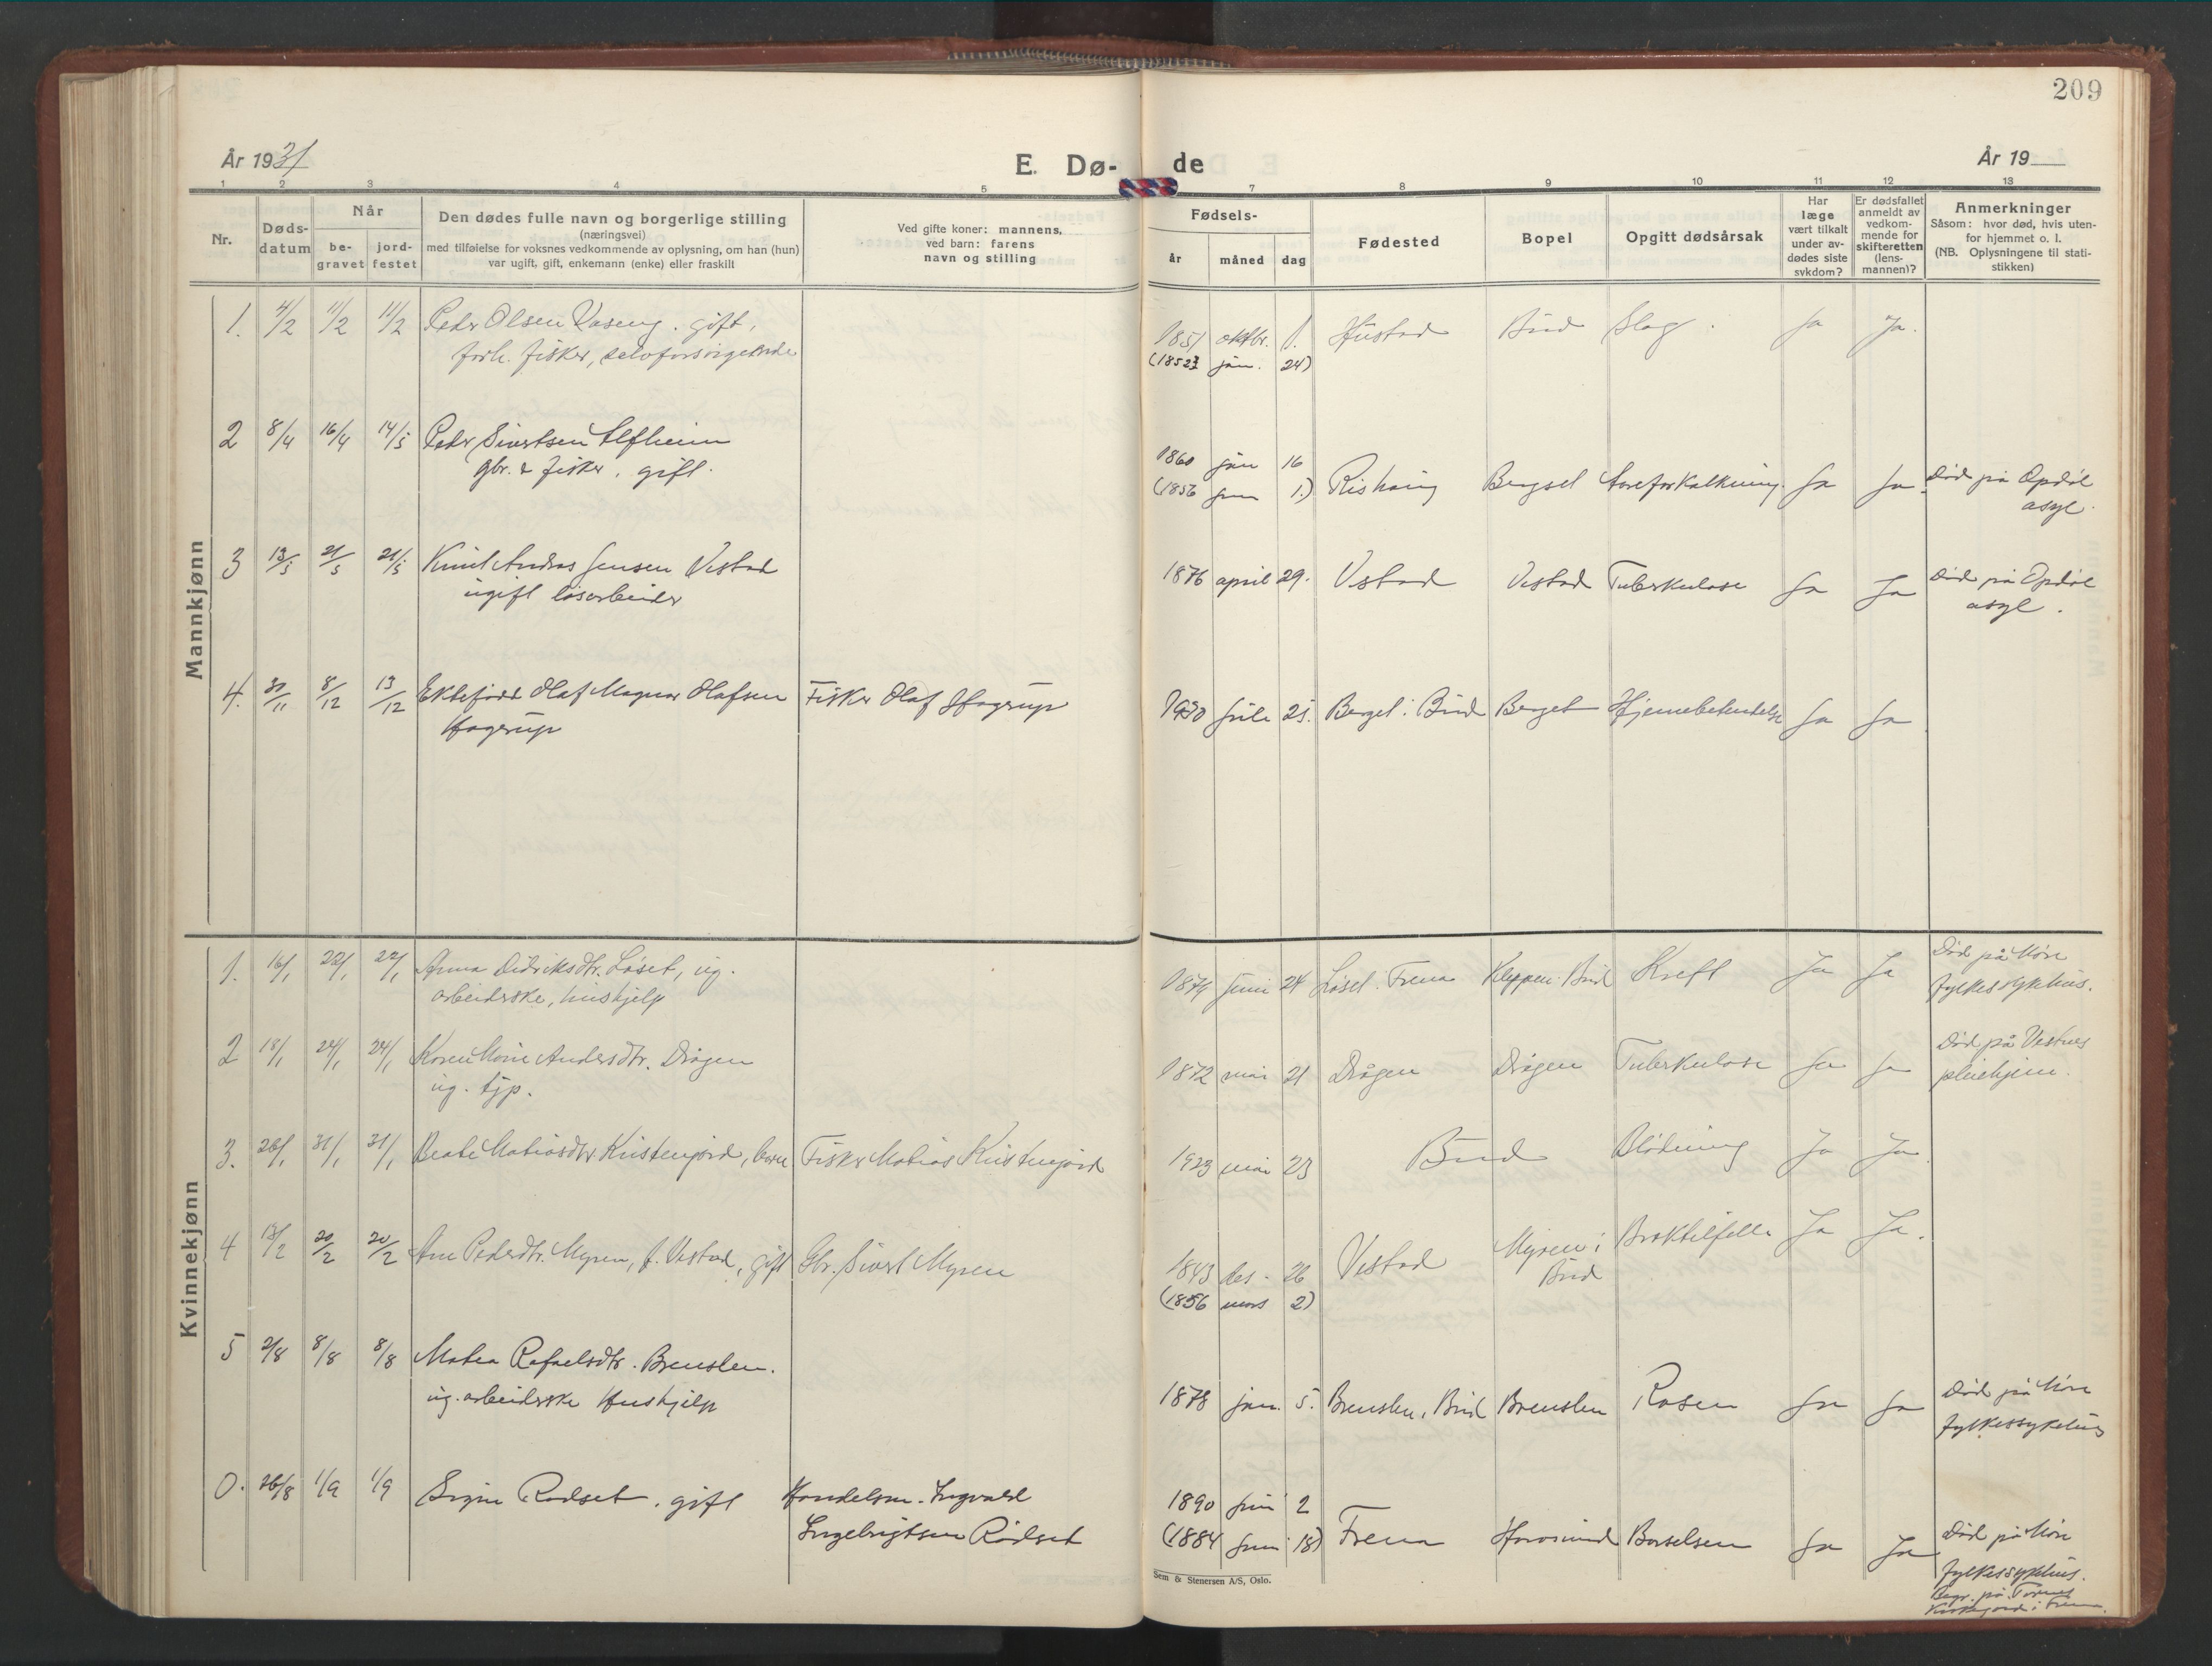 209
År 1931
E. Dø-
de
År 19
1 2 3 4 5 7 8 9 10 11 12 13
Nr.
Døds-
datum
Når
be-
gravet
jord-
festet
Den dødes fulle navn og borgerlige stilling
(næringsvei)
med tilføielse for voksnes vedkommende av oplysning, om han (hun)
var ugift, gift, enkemann (enke) eller fraskilt
Ved gifte koner: mannens,
ved barn: farens
navn og stilling
Fødsels-
år måned dag
Fødested
Bopel
Opgitt dødsårsak
Har
læge
vært tilkalt
under av-
dødes siste
sykdom?
Er dødsfallet
anmeldt av
vedkom-
mende for
skifteretten
(lens-
mannen)?
Anmerkninger
Såsom: hvor død, hvis uten-
for hjemmet o. l.
(NB. Oplysningene til stati-
stikken)
Mannkjønn
1. 4/2 11/2 11/2 Peder Olsen Vaseng. gift, 1851 oktbr. 1. Hustad Bud Slag. Ja Ja.
forh. fisker, selvforsørgende (1852 jan. 24)
2 8/4 16/4 14/5 Peder Sivertsen Alfheim 1860 jan 16
gbr. & fisker. gift. (1856 1.) Bergset Aareforkalkning. Ja Ja Død på Opdøl
asyl.
3 13/5 21/5 21/5 Knut Andreas Jensen Vestad 1876 april 29. Vestad Vestad Tuberkulose Ja Ja Død på Opdøl
ugift løsarbeider asyl.
4. 30/11 8/12 13/12 Ektefødt Olaf Magnar Olafsen Fisker Olaf Hagerup 1930 juli 25. Berget i Bud Berget Hjernebetendelse Ja Ja
Hagerup
Kvinnekjønn
1. 16/1 22/1 22/1 Anna Didriksdtr. Løset, ug. 1874 juni 24 Løset. Frena Kleppen. Bud Kreft Ja Ja Død på Møre
arbeiderske, hushjelp fylkessykehus.
2 18/1 24/1 24/1 Karen Marie Andersdtr. Drågen 1872 mai 21 Drågen Drågen Tuberkulose Ja Ja Død på Vestnes
ug. pleiehjem.
3. 26/1 31/1 31/1 Beate Matiasdtr Kristengård, barn Fisker Matias Kristengård 1923 mai 23 Bud Blødning Ja Ja
4 13/2 20/2 20/2 Ane Pedersdtr. Myren, f. Vestad, gift Gbr. Sivert Myren 1843 des. 26 Vestad Myren i Ja Ja.
Bud
(1856 mars 2)
5 2/8 8/8 8/8 Matea Rafaelsdtr. Brenslen.
ug. arbeiderske Hushjelp 1878 jan. 5. Brenslen, Bud Brenslen Rosen Ja Ja Død på Møre
fylkessykehus
0. 26/8 1/9 1/9 Rødset. gift Handelsm. Ingvald 1890 juni 2
Ingebrigtsen Rødset (1884 juni 18) Frena Harøsund Barselseng Ja Ja Død på Møre
fylkessykehus.
Begr. på Tornes
Kirkegård i Frena.
Sem & Stenersen A/S, Oslo.